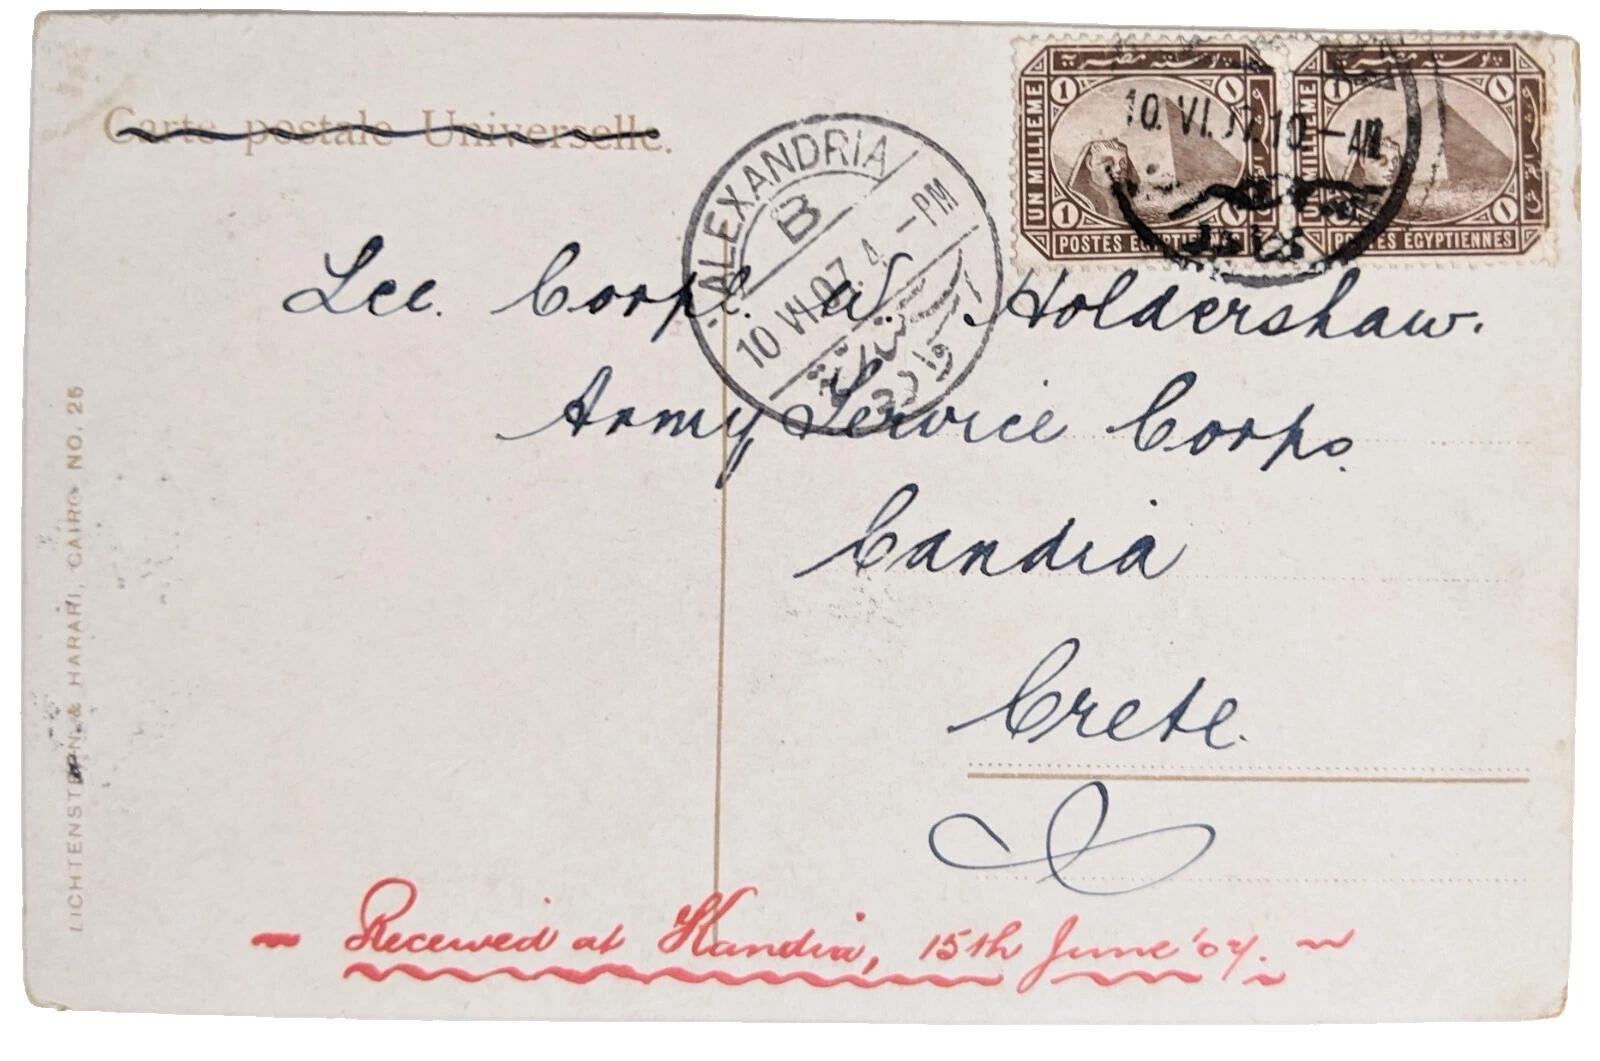 Carte postale Universelle.
بوستة مصرية
UN MILLIEME
1
POSTES EGYPTIENNES
بوستة مصرية
UN MILLIEME
1
POSTES EGYPTIENNES
10. VI. 07. 10 - AM
ALEXANDRIA
B
10 VI 07. 4 - PM
اسكندرية
وارد
Lce. Corpl. W. Holdershaw.
Army Service Corps.
Candia
Crete.
- Received at Kandia, 15th June '07. ~
LICHTENSTERN & HARARI, CAIRO NO. 25